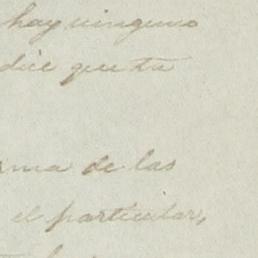 hay ninguno
dice que tu
rma de las
el particular,